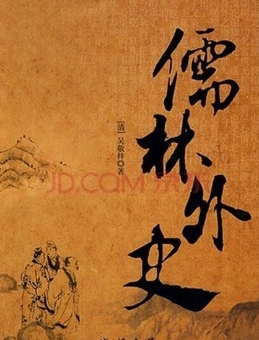 儒林外史
[清] 吴敬梓◎著
JD.COM